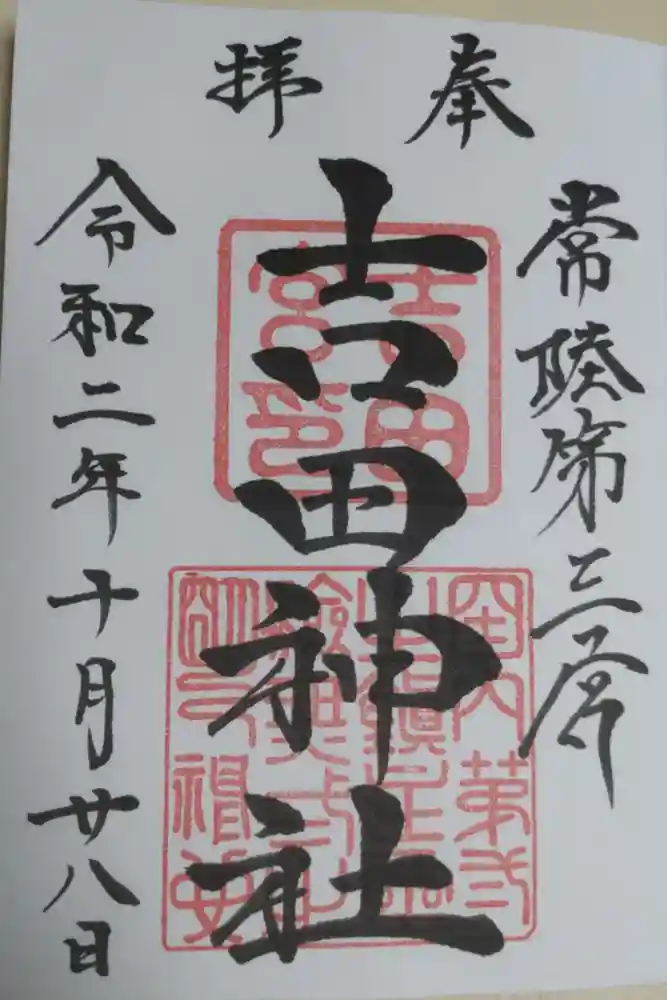 奉拝
常陸第三宮
吉田神社
令和二年十月廿八日
吉田
宮印